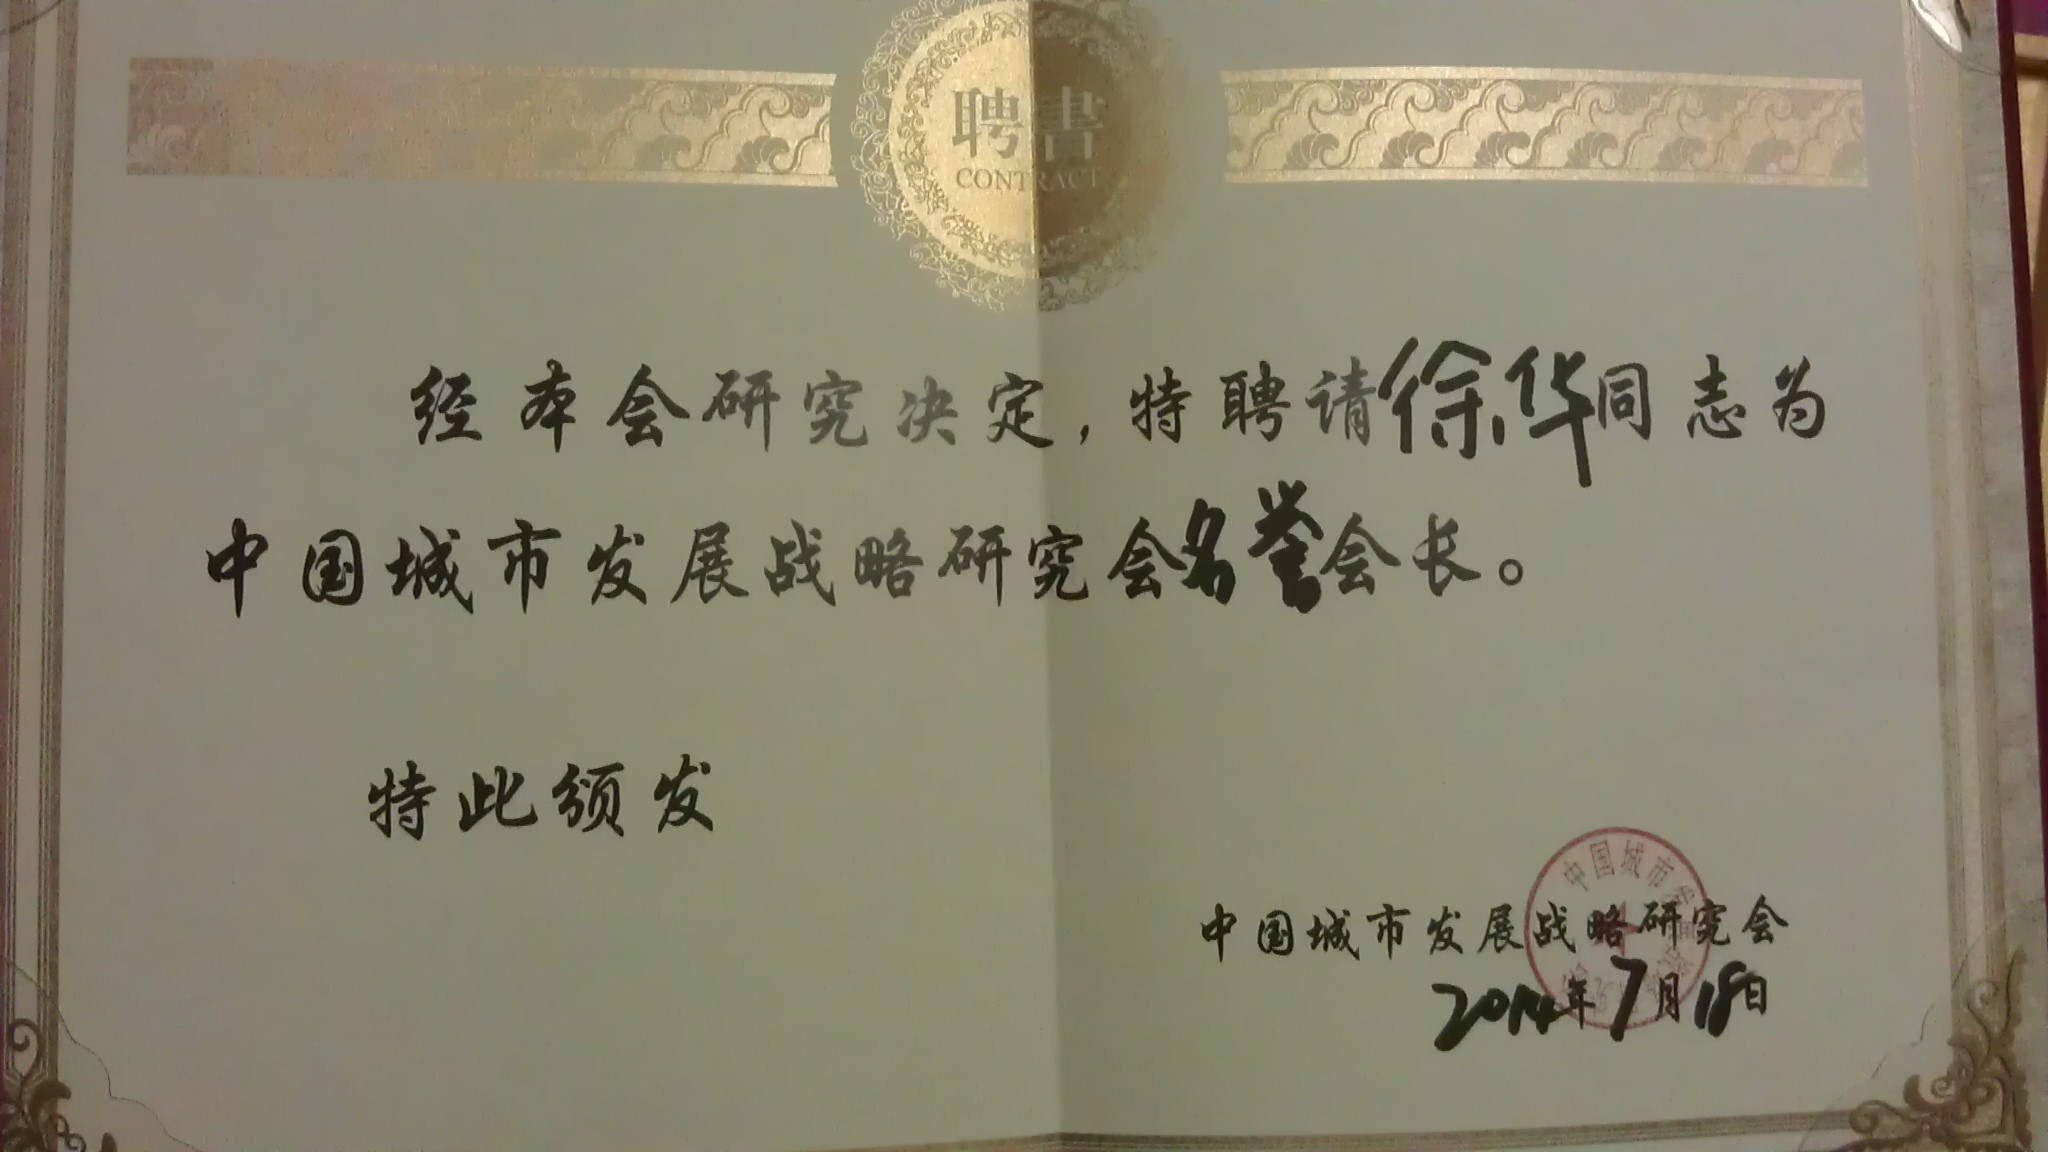 聘書
CONTRACT
经本会研究决定，特聘请徐华同志为
中国城市发展战略研究会名誉会长。
特此颁发
中国城市发展战略研究会
2014年7月18日
中国城市